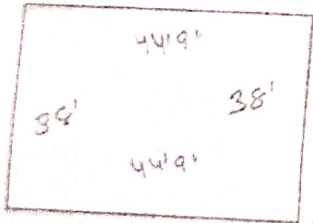 44'9'
38'
38'
44'9'